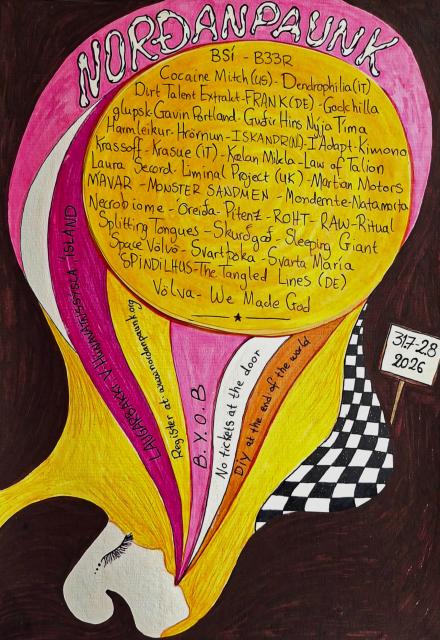 NORÐANPAUNK
BSÍ - B33R
Cocaine Mitch (US) - Dendrophilia (IT)
Dirt Talent Extrakt - FRANK (DE) - Gadchilla
glupsk - Gavin Portland - Guðir Hins Nýja Tíma
Harmleikur - Hörmun - ISKANDR (NL) - I Adapt - Kimono
Krassoff - Krasue (IT) - Kælan Mikla - Law of Talion
Laura Secord - Liminal Project (UK) - Martian Motors
MAVAR - MONSTER SANDMEN - Mondernte - Natamorto
Necrobiome - Óreiða - Pthenz - ROHT - RAW - Ritual
Splitting Tongues - Skurðgoð - Sleeping Giant
Space Volvo - Svartþoka - Svarta María
SPINDILHUS - The Tangled Lines (DE)
Völva - We Made God
LAUGARBAKKI V-HÚNAVATNSSÝSLA ÍSLAND
Register at www.nordanpaunk.org
B.Y.O.B
No tickets at the door
DIY at the end of the world
31.7-2.8
2026